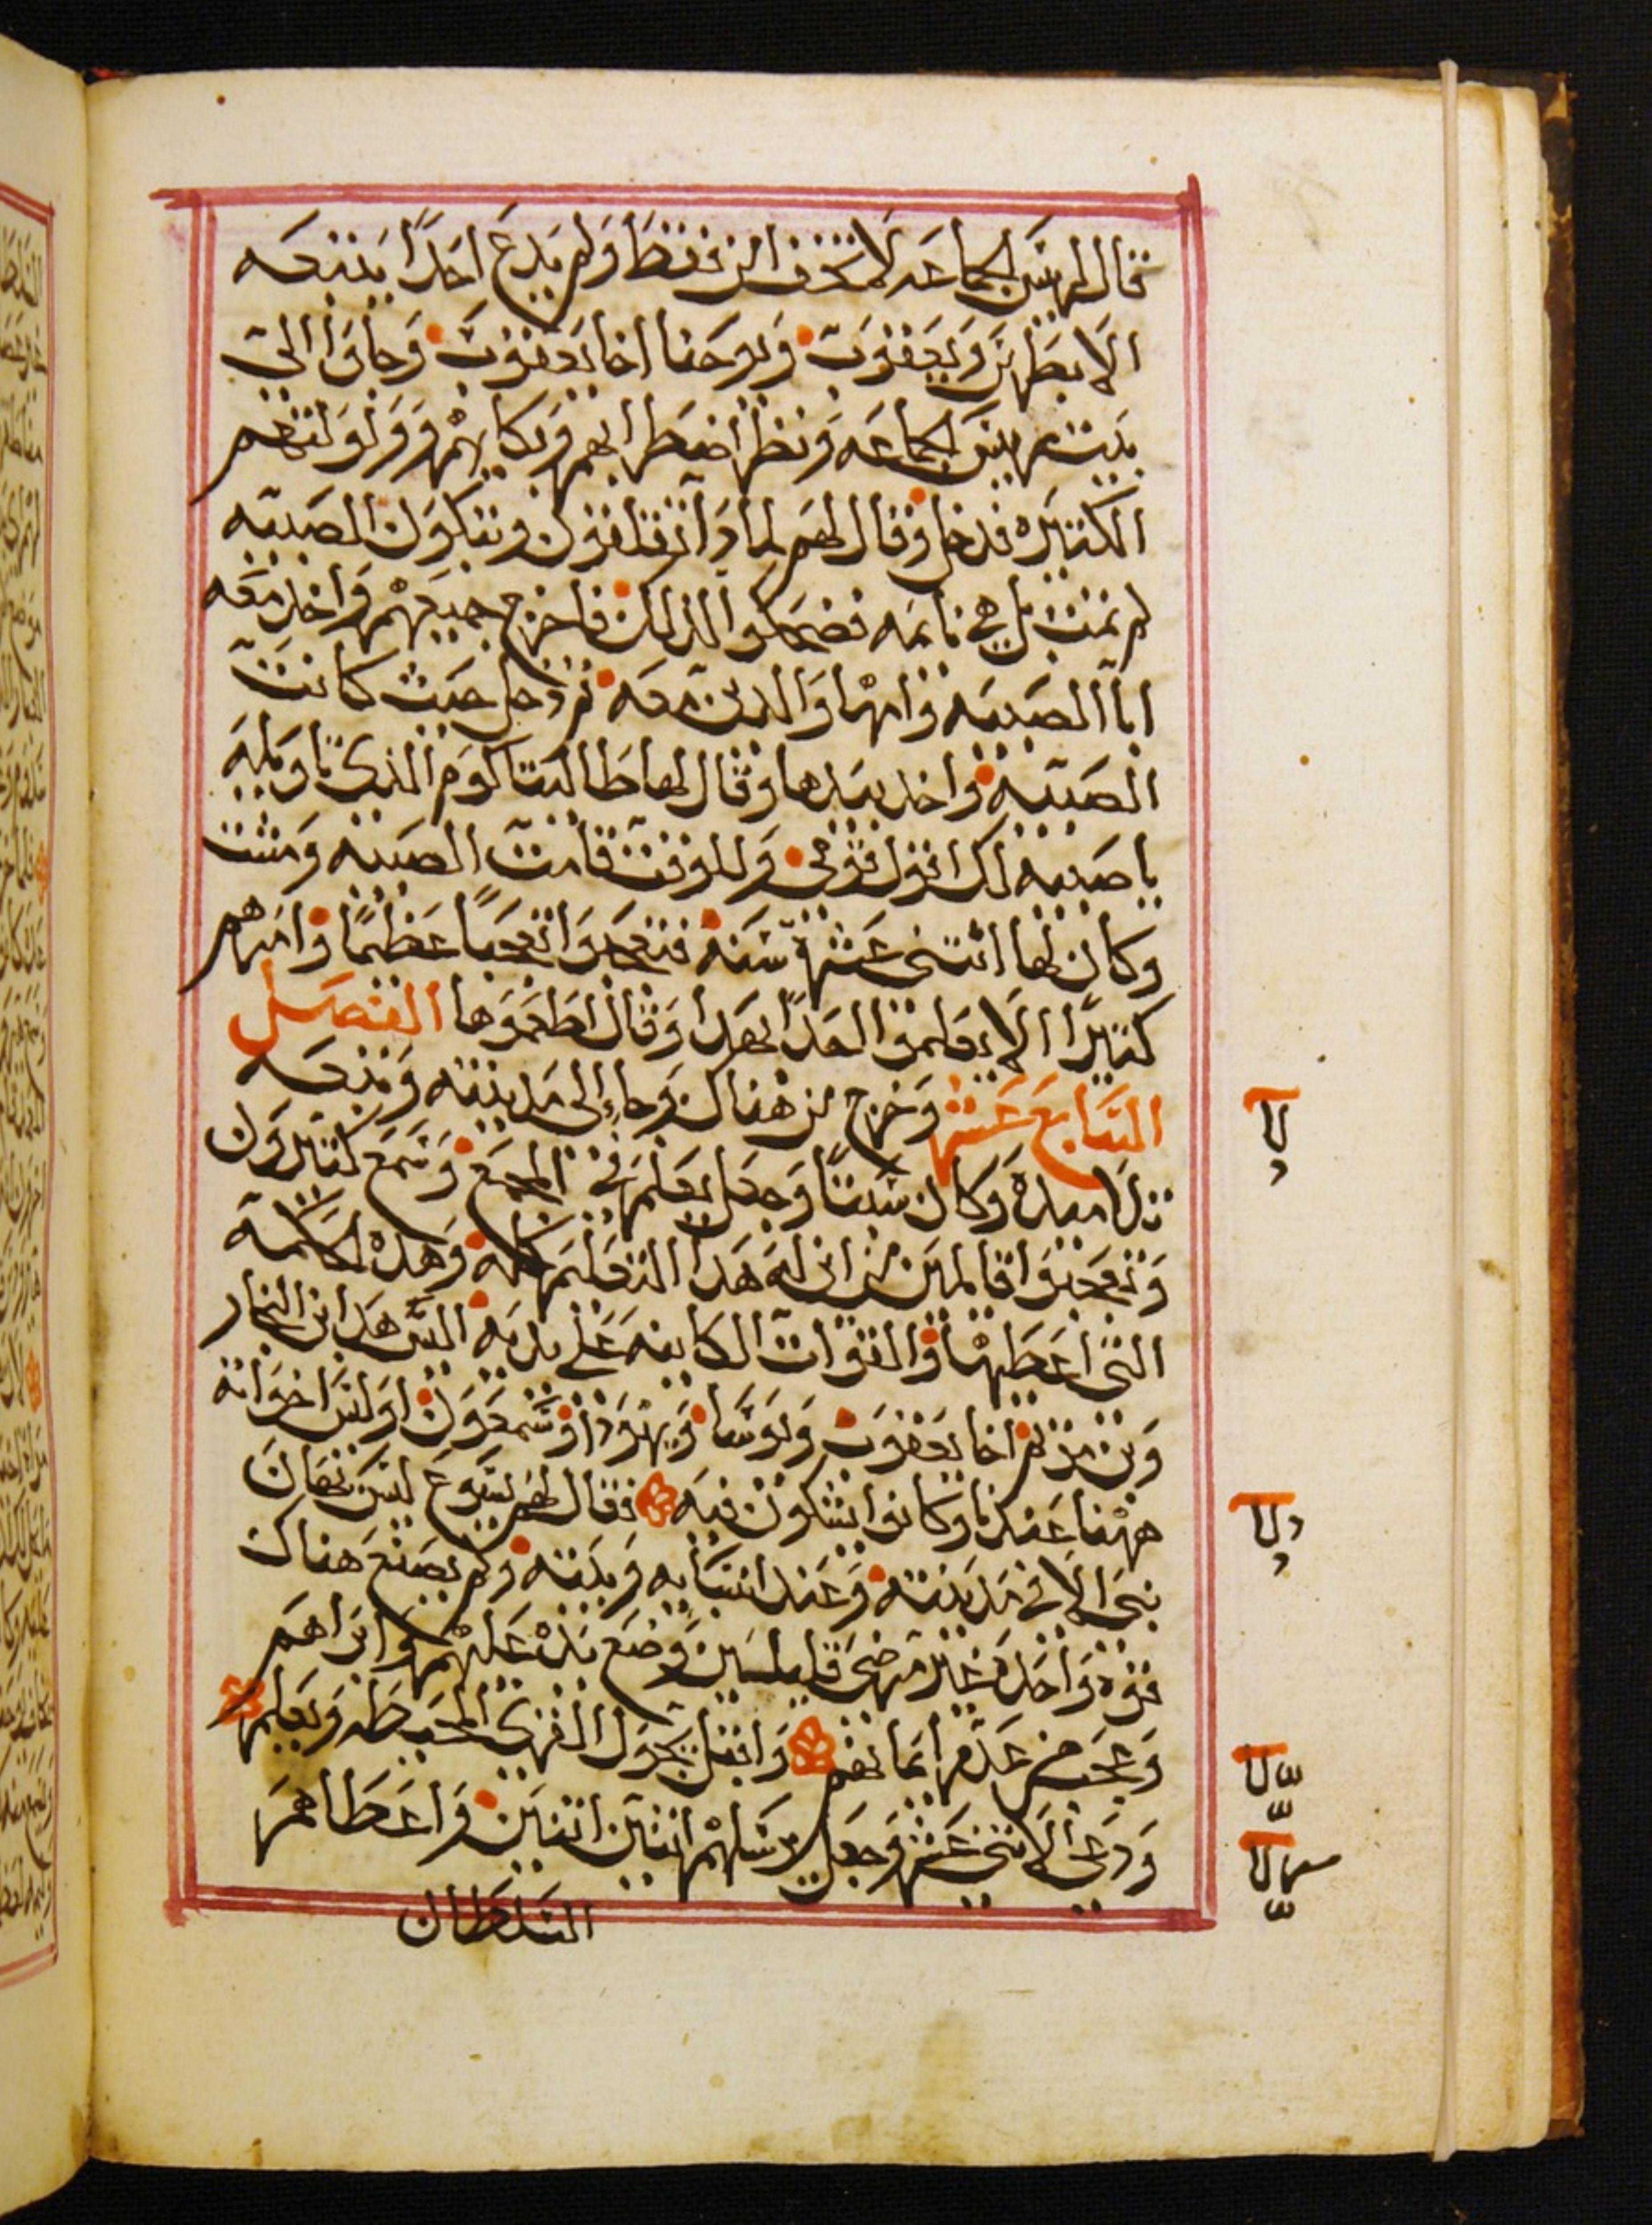 قال لرييس الجماعه لا تخف امن فقط ولم يدع احدًا يتبعه
الا بطرس ويعقوب ويوحنا اخا يعقوب وجاوا الى
بيت رييس الجماعه ونظر اضطرابهم وبكايهم وولولتهم
الكثيره فدخل وقال لهم لماذا تقلقون وتبكون الصبيه
لم تمت بل هي نايمه فضحكوا لذلك فاخرج جميعهم واخذ معه
ابا الصبيه وامها والدين معه ثم دخل حيث كانت
الصبيه واخد بيدها وقال لها طاليتا كوم الذي تاويله
يا صبيه لك اقول قومي وللوقت قامت الصبيه ومشت
وكان لها اثنتى عشرة سنه فتعجبوا تعجبًا عظيمًا وامرهم
كثيرًا الا يعلموا احدًا بهدا وقال اطعموها الفصل
السابع عشر وخرج من هناك وجاء الى مدينته وتبعه
تلاميده وكان سبتًا وجعل يعلم في المجمع وسمع كثيرون
وتعجبوا قايلين من اين له هدا التعليم كله وهده الحكمه
التي اعطيها والقوات الكاينه على يديه اليس هدا ابن النجار
وبن مريم اخا يعقوب ويوسا ويهودا وشمعون اوليس اخواته
ههنا عندنا وكانوا يشكون فيه فقال لهم يسوع ليس يهان
نبي الا في مدينته وعند انسابه وبيته ولم يصنع هناك
قوة واحده غير مرضى قليلين وضع يده عليهم وابراهم
وعجب من عدم ايمانهم واقبل يجول القرى المحيطه ويعلم
ودعى الاثني عشر وجعل يرسلهم اثنين اثنين واعطاهم
السلطان